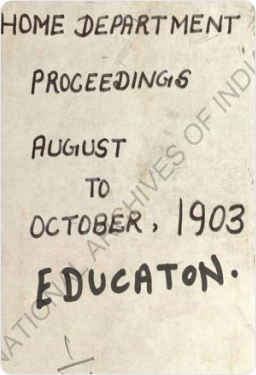 HOME DEPARTMENT
PROCEEDINGS
AUGUST
TO
OCTOBER, 1903
EDUCATON.
NATIONAL ARCHIVES OF INDI